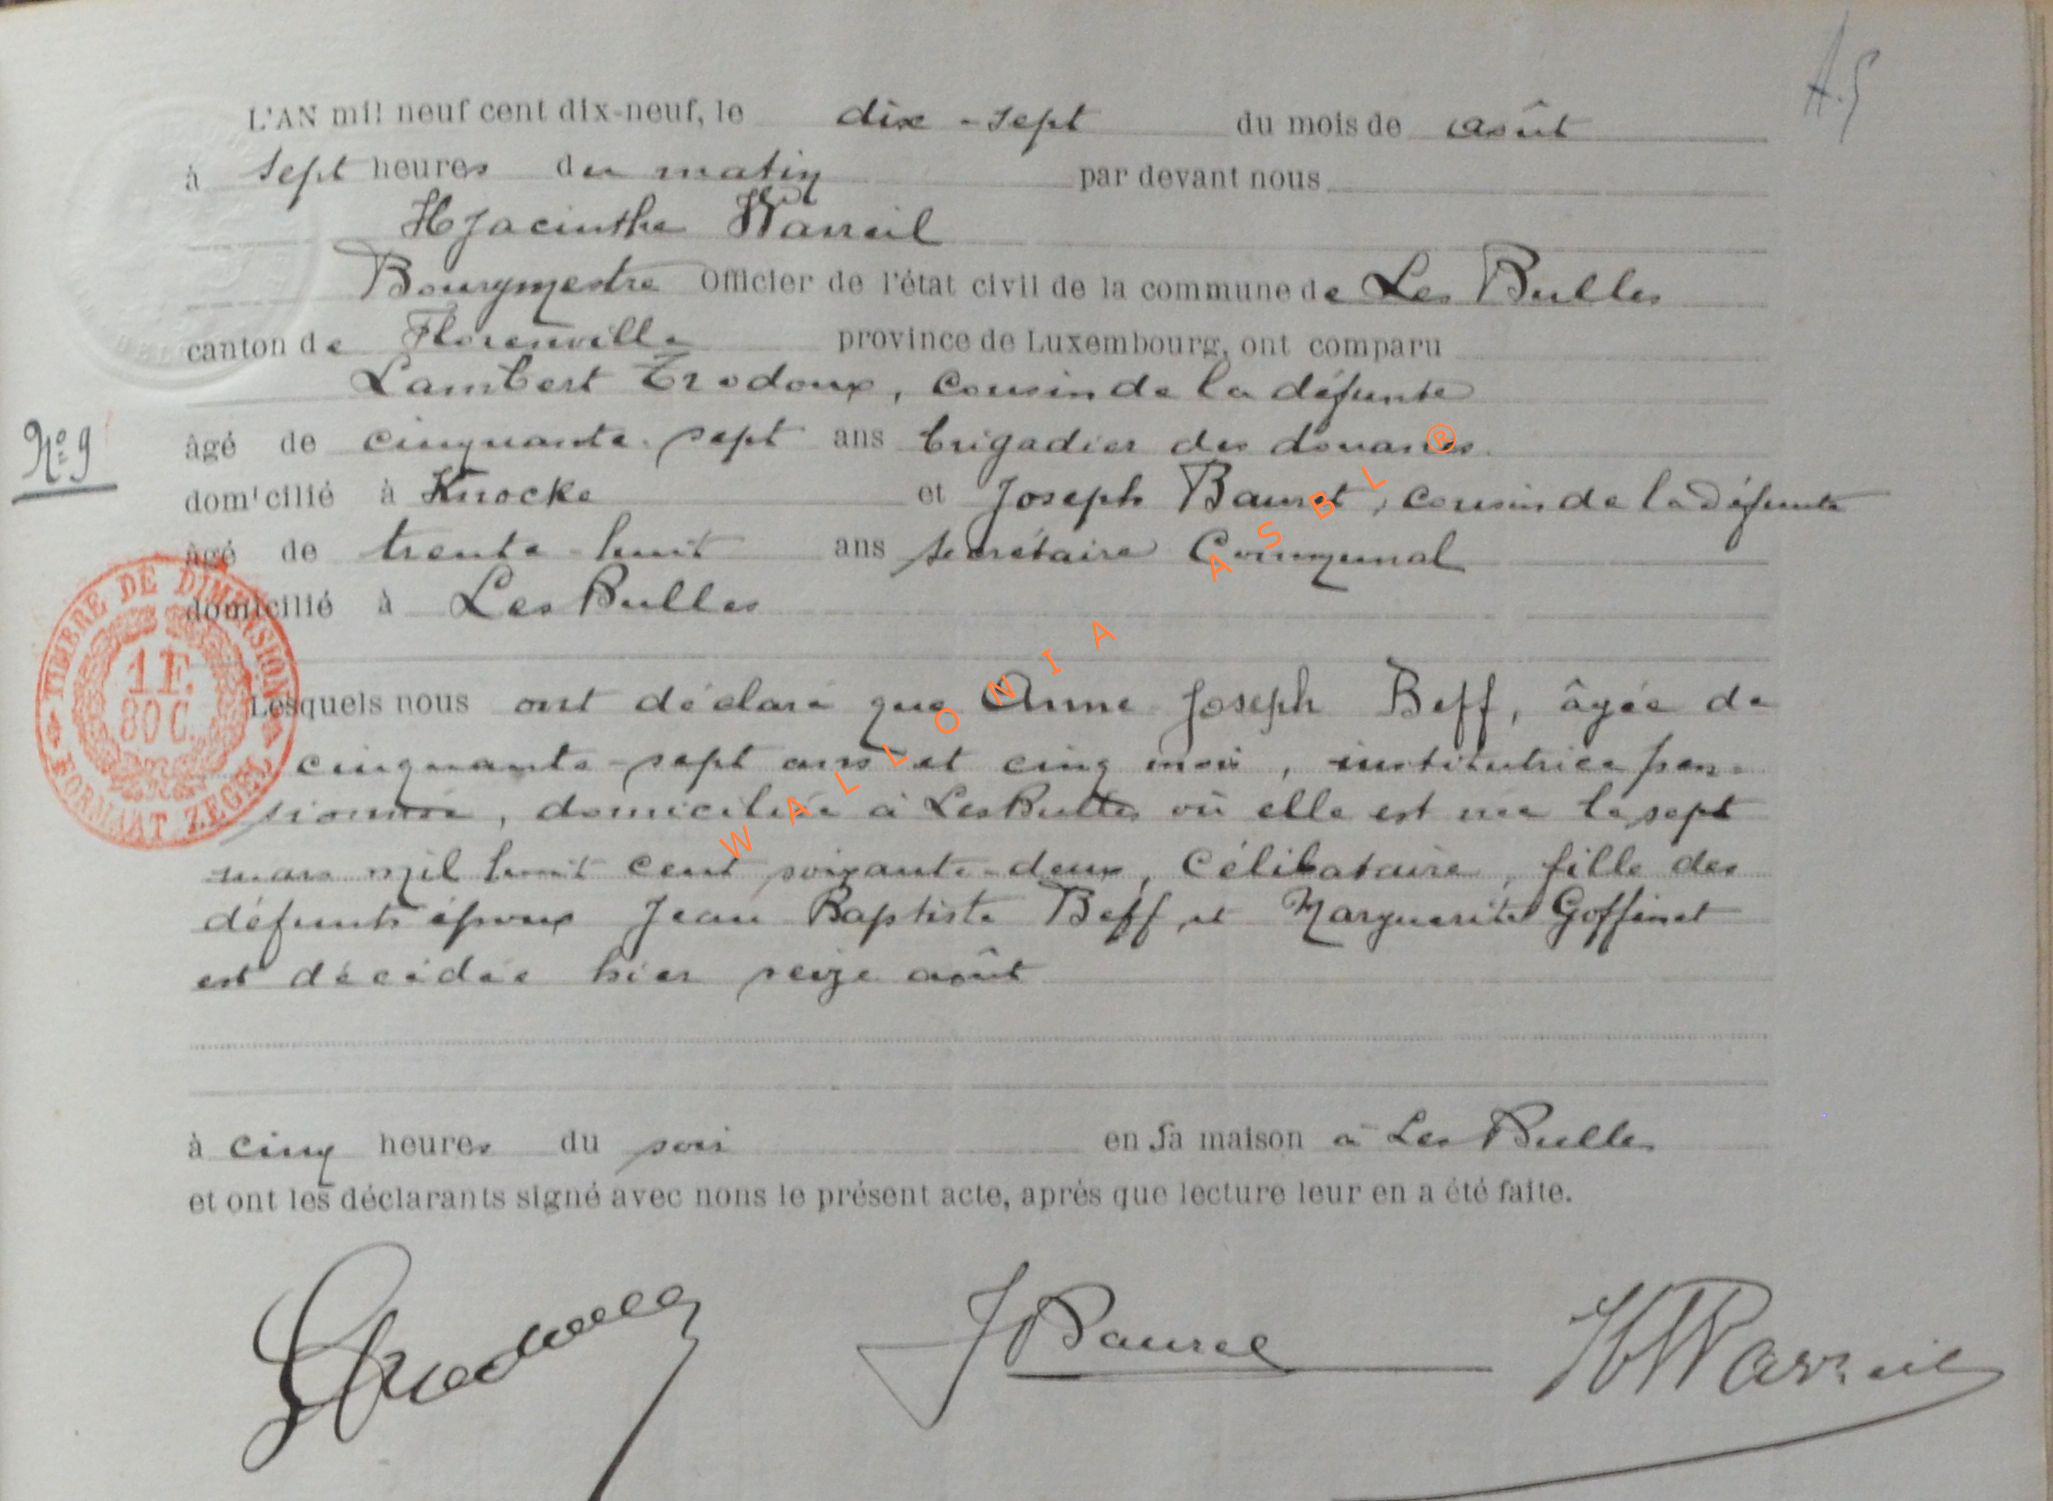 A.S
L'AN mil neuf cent dix-neuf, le dix-sept du mois de août
à sept heures du matin par devant nous
Hyacinthe Warreil
Bourgmestre Officier de l'état civil de la commune de Les Bulles
canton de Florenville province de Luxembourg, ont comparu
Lambert Trodoux, cousin de la défunte
âgé de cinquante-sept ans brigadier des douanes
N° 9
domicilié à Knocke et Joseph Bauret, cousin de la défunte
âgé de trente-huit ans secrétaire Communal
domicilié à Les Bulles
TIMBRE DE DIMENSION
1 F. 80 C.
FORMAAT ZEGEL
Lesquels nous ont déclaré que Anne Joseph Beff, âgée de
cinquante-sept ans et cinq mois, institutrice pen-
sionnée, domiciliée à Les Bulles où elle est née le sept
mars mil huit cent soixante-deux, Célibataire, fille des
défunts époux Jean Baptiste Beff et Marguerite Goffinet
est décédée hier seize août
à cinq heures du soir en sa maison à Les Bulles
et ont les déclarants signé avec nous le présent acte, après que lecture leur en a été faite.
LTrodoux JBauret HWarreil
WALLONIA ASBL ®